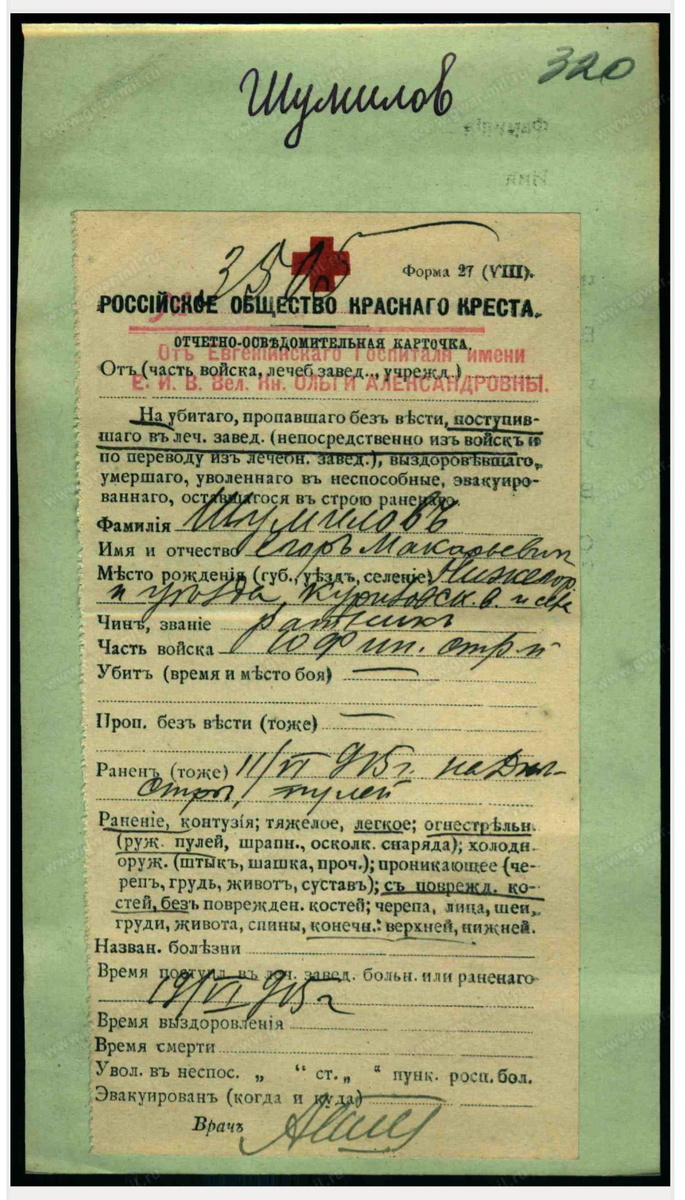 Шумилов
320
3505
Форма 27 (VIII).
РОССІЙСКОЕ ОБЩЕСТВО КРАСНАГО КРЕСТА.
ОТЧЕТНО-ОСВѢДОМИТЕЛЬНАЯ КАРТОЧКА.
Отъ Евгеніинскаго Госпиталя имени
Отъ (часть войска, лечеб. завед.., учрежд.)
Е. И. В. Вел. Кн. ОЛЬГИ АЛЕКСАНДРОВНЫ.
На убитаго, пропавшаго безъ вѣсти, поступив-
шаго въ леч. завед. (непосредственно изъ войскъ и
по переводу изъ лечебн. завед.), выздоровѣвшаго,
умершаго, уволеннаго въ неспособные, эвакуиро-
ваннаго, оставшагося въ строю раненаго.
Фамилія Шумиловъ
Имя и отчество Егоръ Макарьевич
Мѣсто рожденія (губ., уѣздъ, селеніе) Нижегор
и уѣзда,
Чинъ, званіе ратникъ
Часть войска 10 Фин. стр п
Убитъ (время и мѣсто боя) —
Проп. безъ вѣсти (тоже) —
Раненъ (тоже) 11/VI 915 г. на Дне-
стрѣ, пулей
Раненіе, контузія; тяжелое, легкое; огнестрѣльн.
(руж. пулей, шрапн., осколк. снаряда); холодн.
оруж. (штыкъ, шашка, проч.); проникающее (че-
репъ, грудь, животъ, суставъ); съ поврежд. ко-
стей, безъ поврежден. костей; черепа, лица, шеи,
груди, живота, спины, конечн.: верхней, нижней.
Назван. болѣзни
Время поступл. въ леч. завед. больн. или раненаго
19/VI 915 г
Время выздоровленія
Время смерти
Увол. въ неспос. „ “ ст. „ “ пунк. росп. бол.
Эвакуированъ (когда и куда)
Врачъ